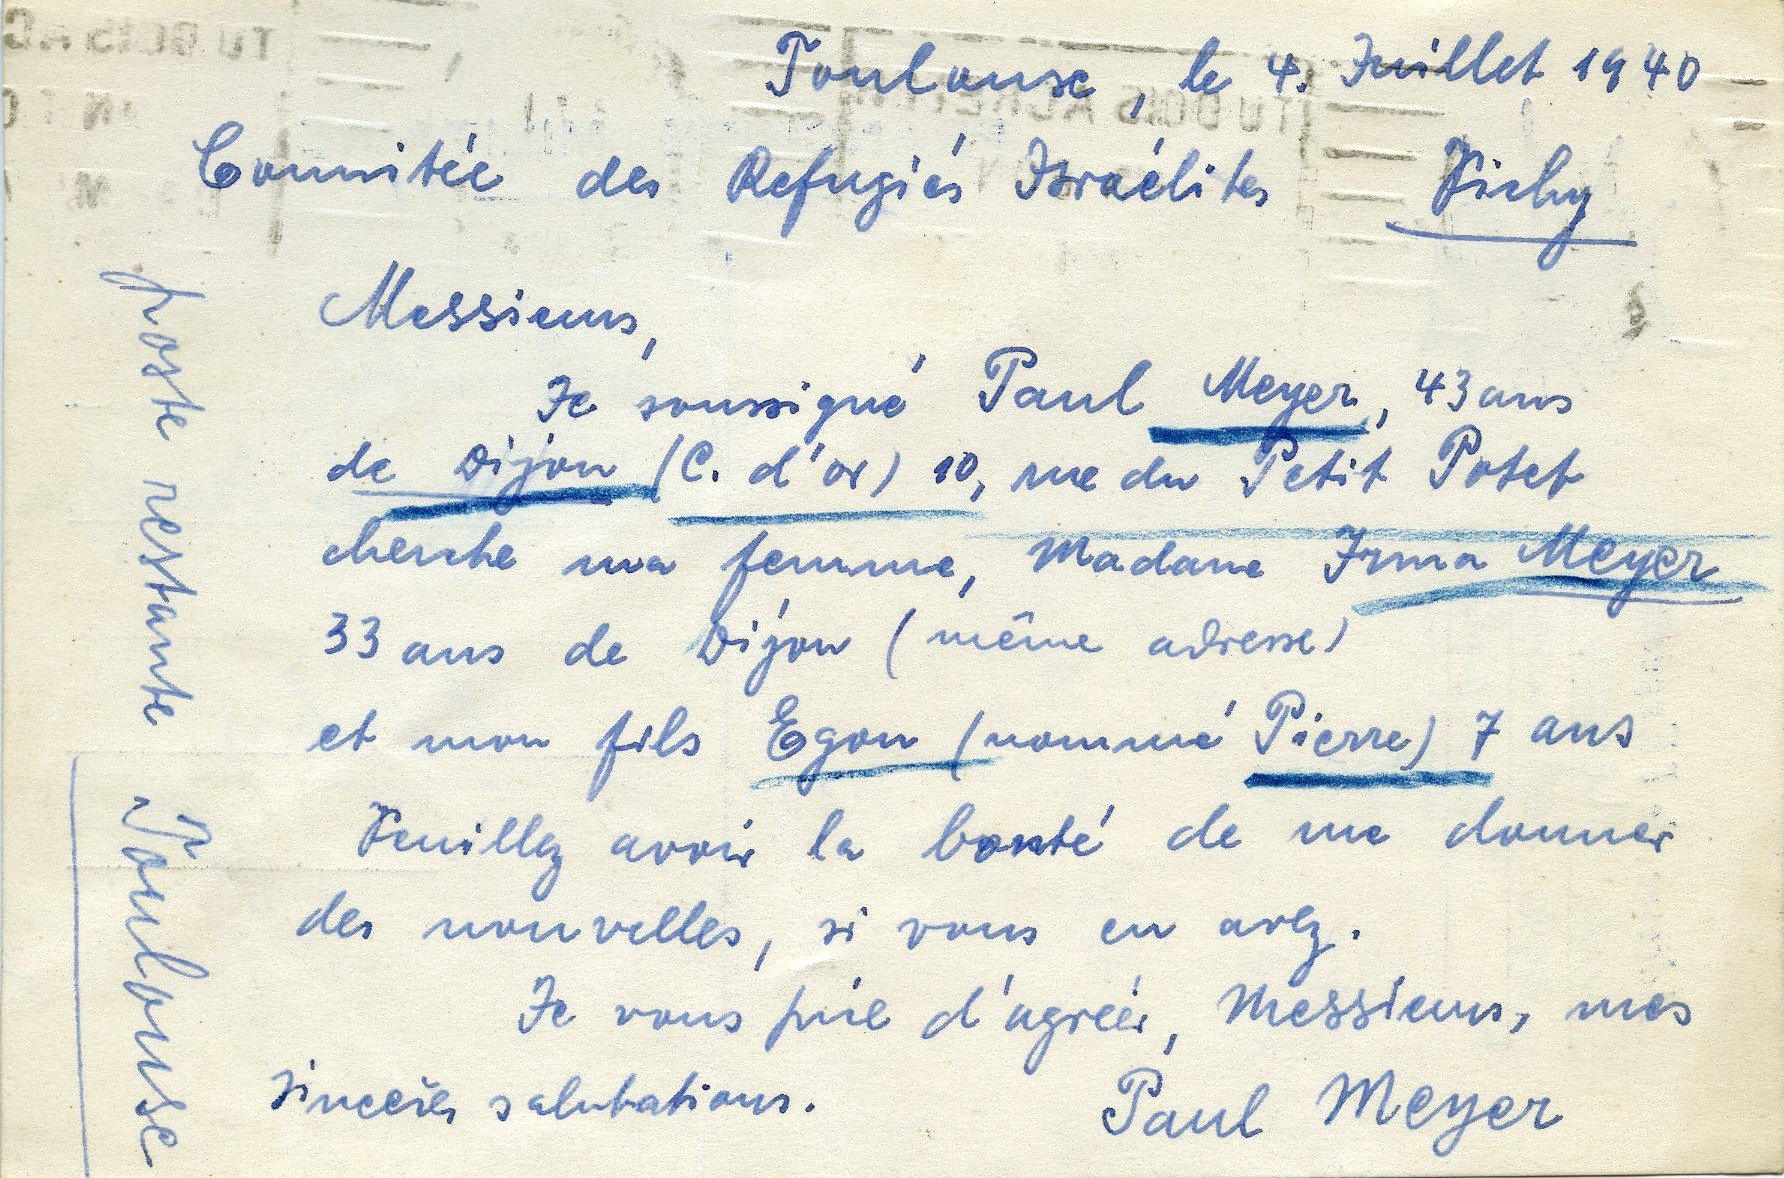 Toulouse, le 4. Juillet 1940
Comitée des Refugiés Israélites Vichy
Messieurs,
Je soussigné Paul Meyer, 43 ans
de Dijon (C. d'or) 10, rue du Petit Potet
cherche ma femme, Madame Irma Meyer
33 ans de Dijon (même adresse)
et mon fils Egon (nommé Pierre) 7 ans
Veuillez avoir la bonté de me donner
des nouvelles, si vous en avez.
Je vous prie d'agréér, Messieurs, mes
sincères salutations. Paul Meyer
poste restante Toulouse